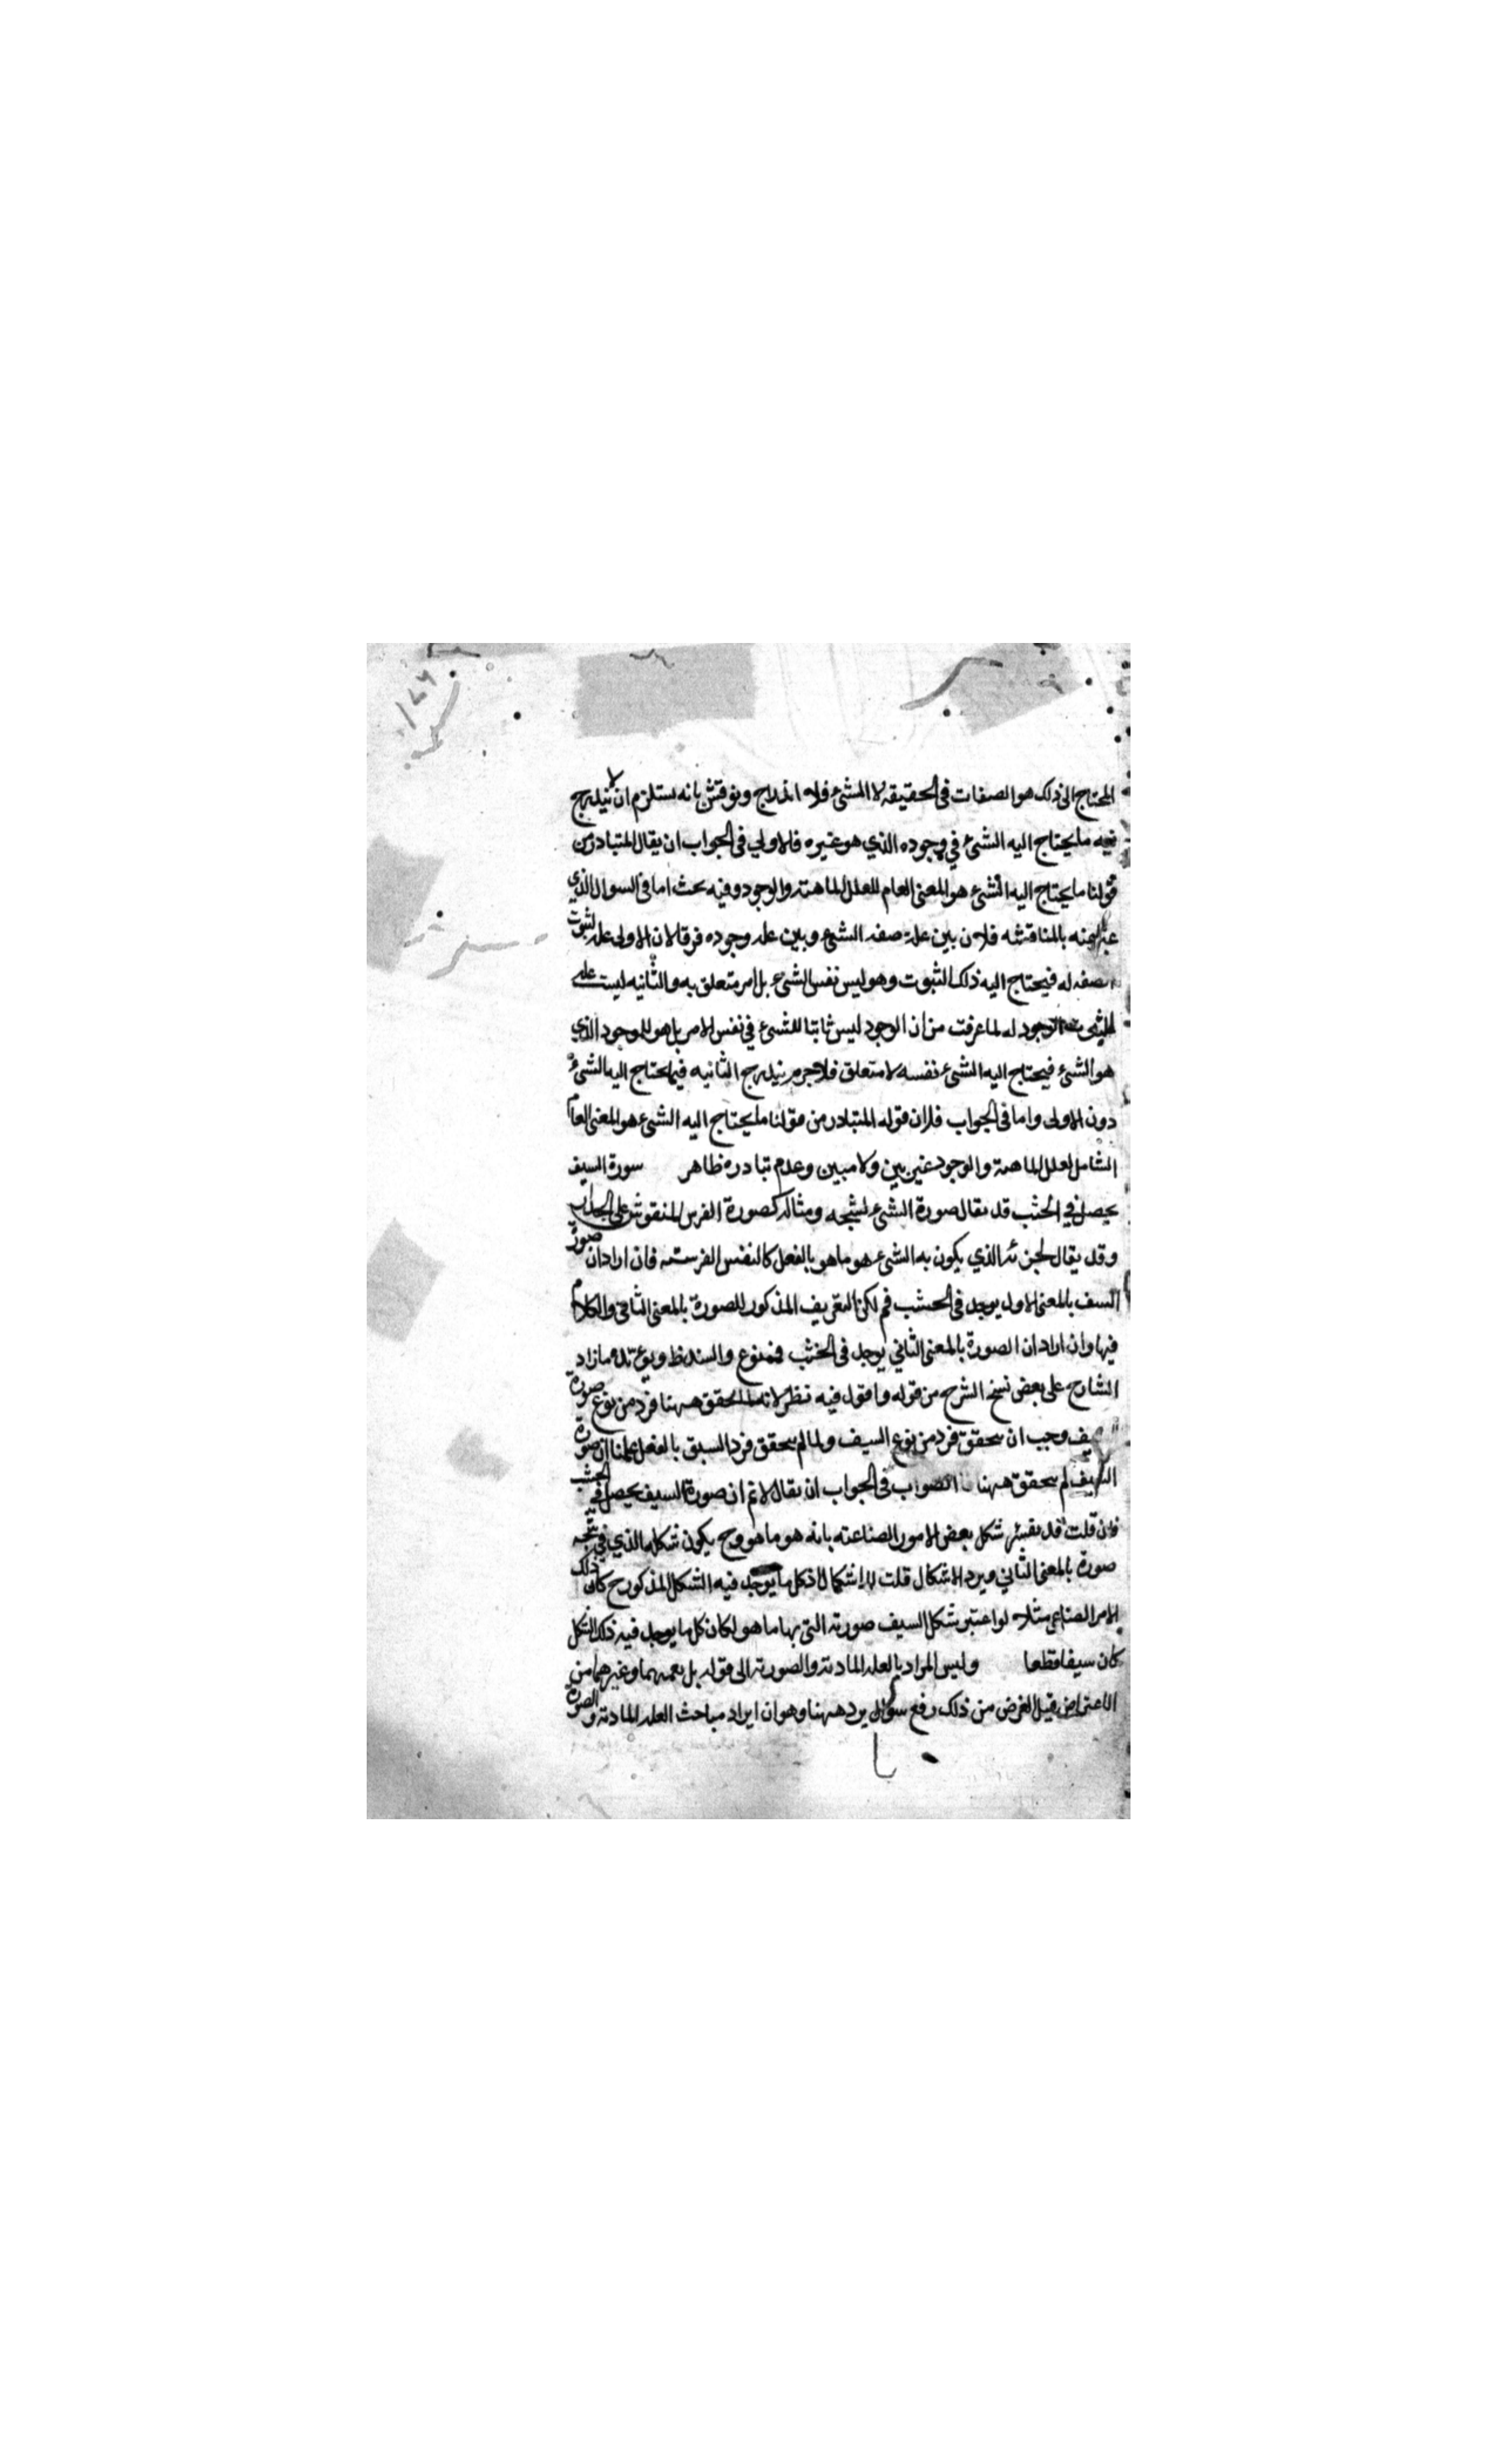 المحتاج الى ذلك هو الصفات في الحقيقه لا الشيء فلا اندراج ونوقش بانه يستلزم ان لا يندرج
فيه ما يحتاج اليه الشيء في وجوده الذي هو غيره فالاولي في الجواب ان يقال المتبادر من
قولنا ما يحتاج اليه الشيء هو المعنى العام للعلل الماهية والوجود وفيه بحث اما في السوال الذي
عبر عنه بالمناقشه فلان بين علة صفه الشيء وبين عله وجوده فرقا لان الاولى عله لثبوت
الصفه له فيحتاج اليه ذلك الثبوت وهو ليس نفس الشيء بل امر متعلق به والثانيه ليست عله
لثبوت الوجود له لما عرفت من ان الوجود ليس ثابتا للشيء في نفس الامر بل هو للوجود الذي
هو الشيء فيحتاج اليه الشيء نفسه لا متعلق فلا جرم يندرج الثانيه فيما يحتاج اليه الشيء
دون الاولى واما في الجواب فلان قوله المتبادر من قولنا ما يحتاج اليه الشيء هو المعنى العام
الشامل لعلل الماهية والوجود غير بين ولا مبين وعدم تبادره ظاهر سورة السيف
يحصل في الخشب قد يقال صورة الشيء لشبحه ومثاله كصورة الفرس المنقوش على الجدار
وقد يقال لجزئه الذي يكون به الشيء هو ما هو بالفعل كالنفس الفرسيه فان اراد ان صورة
السيف بالمعنى الاول يوجد في الخشب فم لكن التعريف المذكور للصورة بالمعنى الثاني والكلام
فيها وان اراد ان الصورة بالمعنى الثاني يوجد في الخشب فممنوع والسند ظ ويؤيده ما زاد
الشارح على بعض نسخ الشرح من قوله واقول فيه نظر لانه المحقق ههنا فرد من نوع صورة
السيف وجب ان يتحقق فرد من نوع السيف ولما لم يتحقق فرد السيق بالفعل علمنا ان صورة
السيف لم يتحقق ههنا الصواب في الجواب ان يقال لا نم ان صورة السيف يحصل في الخشب
فان قلت قد يفسر شكل بعض الامور الصناعيه بانه هو ما هو وح يكون شكله الذي في
صورة بالمعنى الثاني ويرد الاشكال قلت لا اشكال اذ كل ما يوجد فيه الشكل المذكور ح كان ذلك
الامر الصناعي مثلا لو اعتبر شكل السيف صورته التي بها ما هو لكان كل ما يوجد فيه ذلك الشكل
كان سيفا قطعا وليس المراد بالعله المادية والصوريه الى قوله بل يعمهما وغيرهما من
الاعتراض قيل الغرض من ذلك دفع سؤال يرد ههنا وهو ان ايراد مباحث العله المادية والصورة